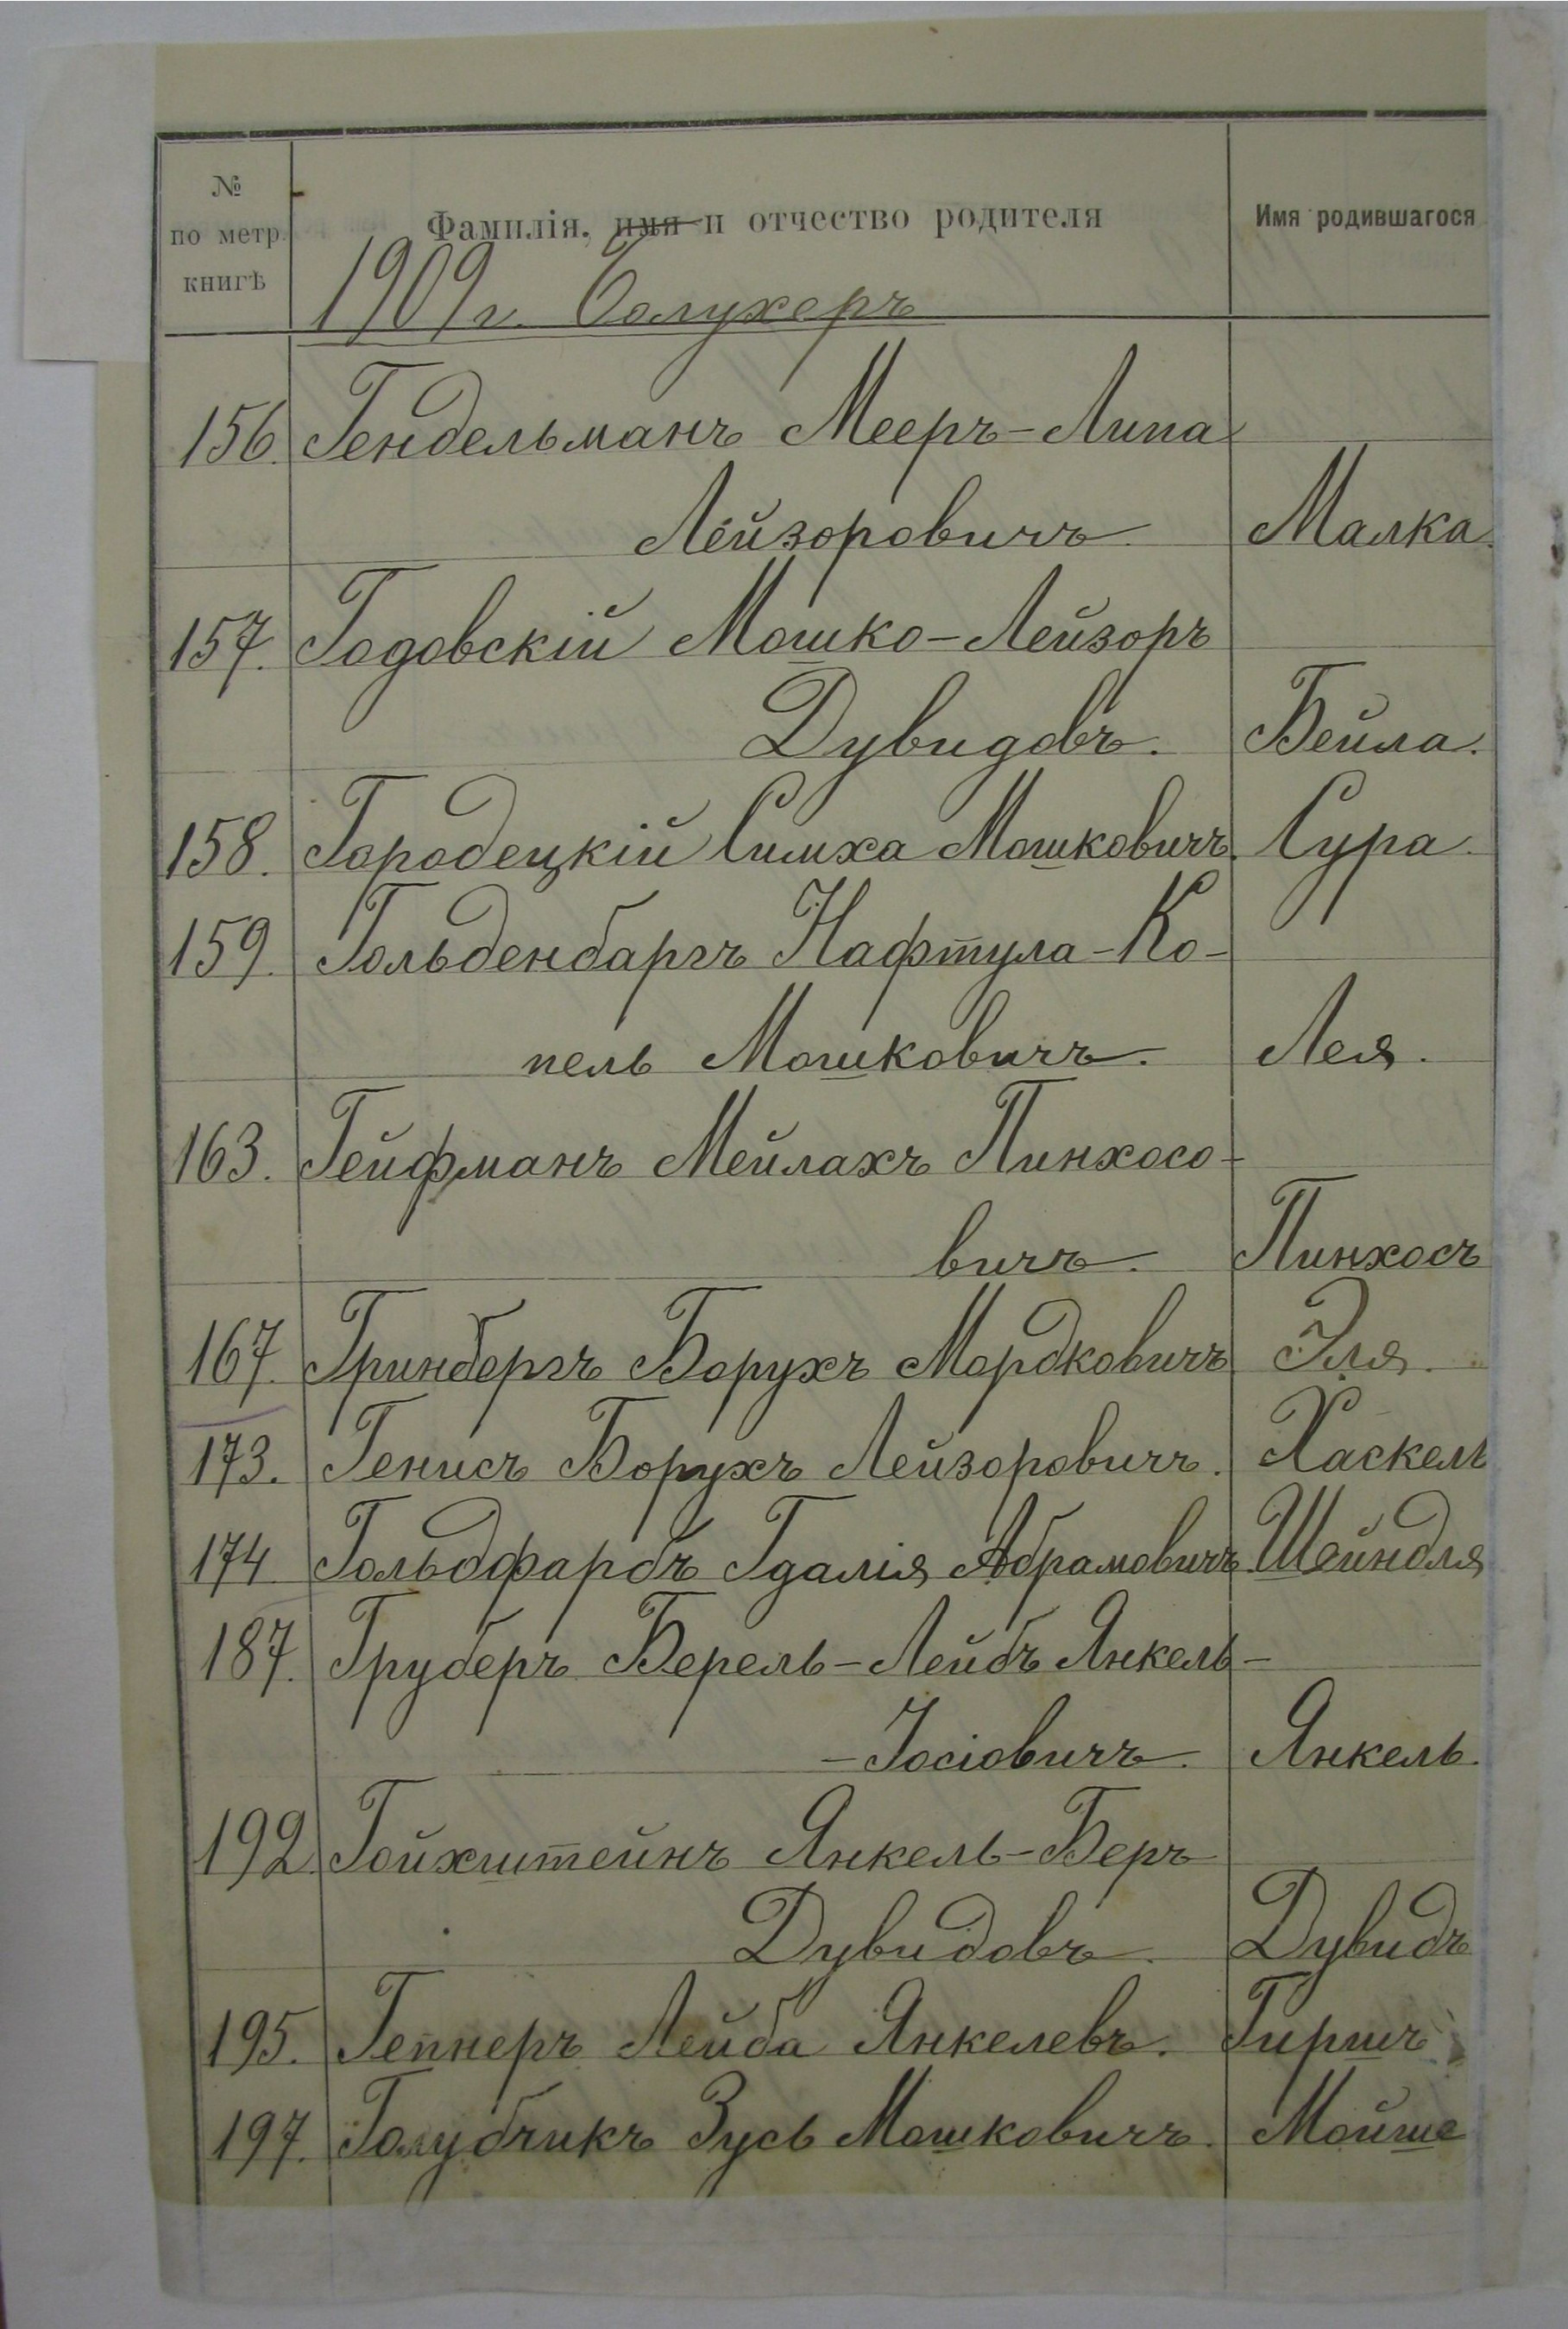 №
по метр.
книгѣ
Фамилія, имя и отчество родителя
Имя родившагося
1909 г.
156. Гендельманъ Мееръ-Липа
Лейзоровичъ. Малка.
157. Годовскій Мошко-Лейзоръ
Дувидовъ. Бейла.
158. Городецкій Симха Мошковичъ. Сура.
159. Гольденбаргъ Нафтула-Ко-
пель Мошковичъ. Лея.
163. Гейфманъ Мейлахъ Пинхосо-
вичъ. Пинхосъ
167. Гринбергъ Борухъ Мордковичъ Эля.
173. Генисъ Борухъ Лейзоровичъ. Хаскель
174 Гольдфарбъ Гдалія Абрамовичъ. Шейндля
187. Груберъ Берель-Лейбъ Янкель-
-Іосіовичъ. Янкель.
192. Гойхштейнъ Янкель-Беръ
Дувидовъ. Дувидъ
195. Гепнеръ Лейба Янкелевъ. Гиршъ
197. Голубчикъ Зусь Мошковичъ. Мойше